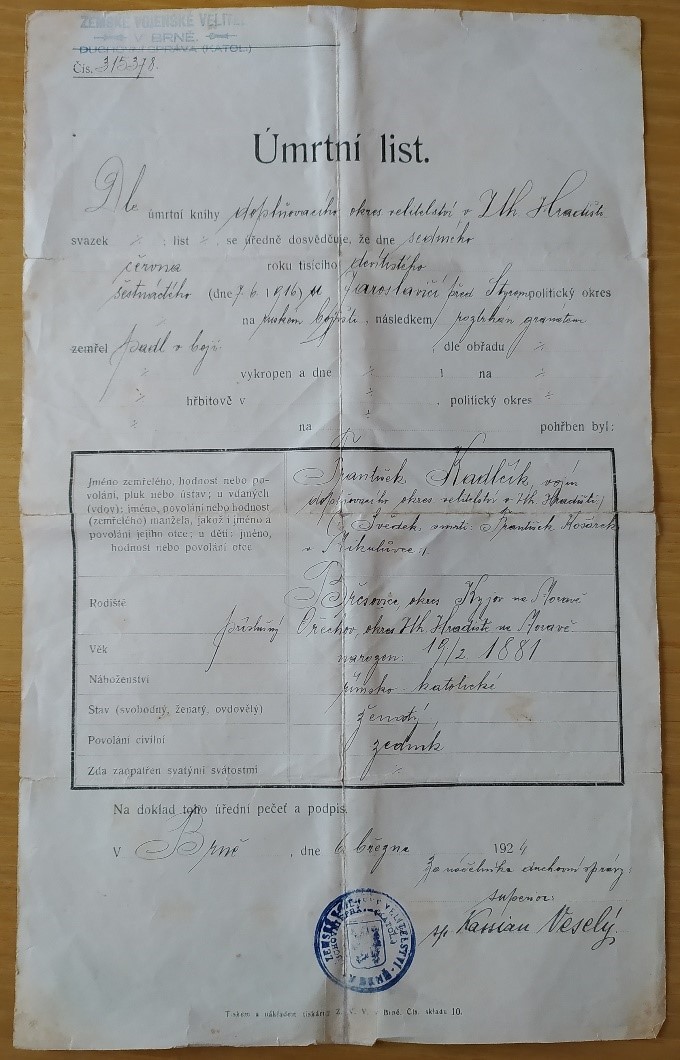 ZEMSKÉ VOJENSKÉ VELITEL
V BRNĚ.
DUCHOVNÍ SPRÁVA (KATOL.)
Čís. 315378.
Úmrtní list.
Dle úmrtní knihy doplňovacího okres velitelství v Uh Hradišti
svazek ⁒ ; list ⁒ , se úředně dosvědčuje, že dne sedmého
června roku tisícího devítistého
šestnáctého (dne 7/6 1916) u Jaroslavičí před Styrem politický okres
na ruském bojišti, následkem roztrhán granátem
zemřel padl v boji , dle obřadu ⁒
⁒ vykropen a dne ⁒ 1 na ⁒
⁒ hřbitově v ⁒ , politický okres ⁒
⁒ na ⁒ pohřben byl:
Jméno zemřelého, hodnost nebo po-
volání, pluk nebo ústav; u vdaných
(vdov): jméno, povolání nebo hodnost
(zemřelého) manžela, jakož i jméno a
povolání jejího otce; u dětí: jméno,
hodnost nebo povolání otce
František Kadlčík, vojín
doplňovacího okres velitelství v Uh. Hradišti,
Svědek smrti: František Košárek
v Mikulůvce
Rodiště Břesovice, okres Kyjov na Moravě
příslušný Ořechov, okres Uh. Hradiště na Moravě
Věk narozen: 19/2. 1881
Náboženství římsko-katolické
Stav (svobodný, ženatý, ovdovělý) ženatý,
Povolání civilní zedník
Zda zaopatřen svatými svátostmi ⁒
Na doklad toho úřední pečeť a podpis.
V Brně, dne 6. března 1924
Za náčelníka duchovní správy:
superior:
Kassian Veselý.
ZEMSKÉ VOJENSKÉ VELITELSTVÍ - BRNO
DUCHOVNÍ SPRÁVA (KATOL.)
Tiskem a nákladem tiskárny Z. V. V. v Brně. Čís. skladu 10.